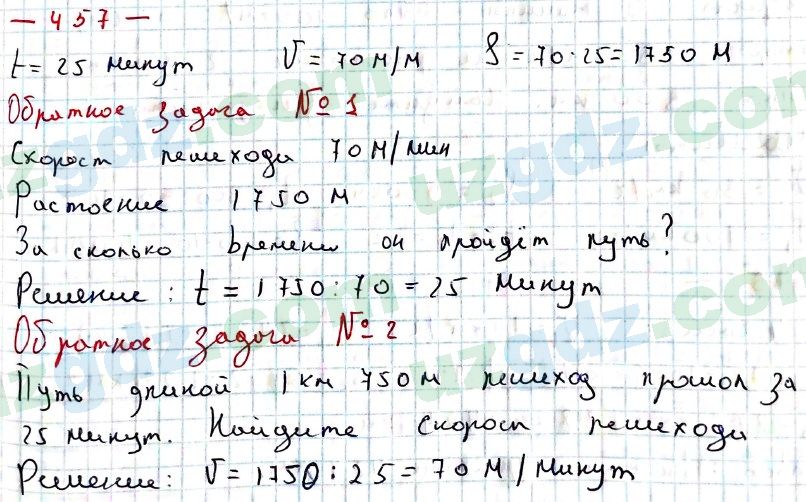 — 457 —
t = 25 минут V = 70 м/м S = 70·25 = 1750 м
Обратное задача №1
Скорост пешеходи 70 м/мин
Растоение 1750 м
За сколько времени он пройдёт путь?
Решение: t = 1750 : 70 = 25 минут
Обратное задача №2
Путь длиной 1 км 750 м пешеход прошол за
25 минут. Найдите скорост пешехода
Решение: V = 1750 : 25 = 70 м/минут
uzgdz.com